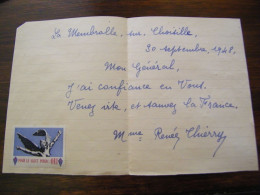 La Membrolle sur Choisille
30 septembre 1948.
Mon Général,
J'ai confiance en Vous.
Venez vite et sauvez la France.
Mme Renée Thierry